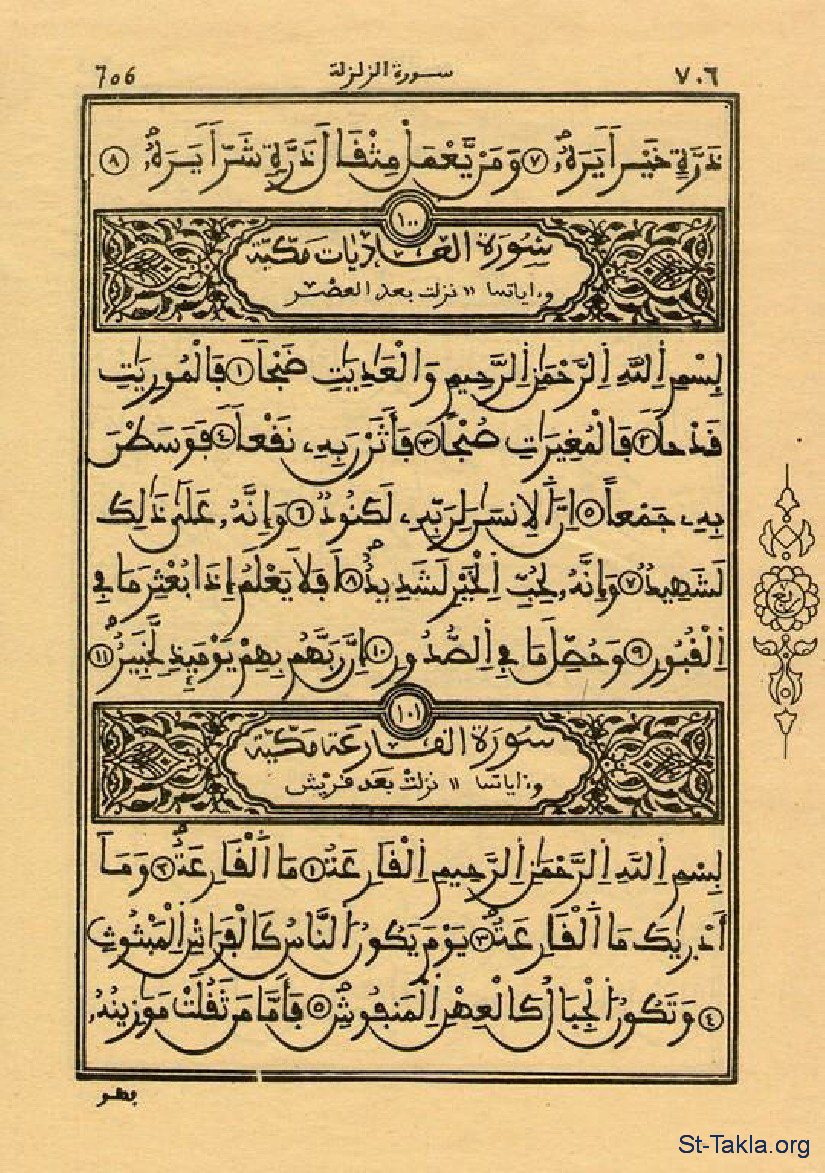 ٧٠٦ سورة الزلزلة 706
ذَرَّةٍ خَيْراً يَرَهُۥ ٧ وَمَنْ يَّعْمَلْ مِثْقَالَ ذَرَّةٍ شَرّاً يَرَهُۥ ٨
١٠٠
سُورَةُ العَادِيَات مَكِّيَّة
وءاياتها ١١ نزلت بعد العصر
بِسْمِ اِللَّهِ اِلرَّحْمَٰنِ اِلرَّحِيمِ وَالْعَٰدِيَٰتِ ضَبْحاً ١ فَالْمُورِيَٰتِ
قَدْحاً ٢ فَالْمُغِيرَٰتِ صُبْحاً ٣ فَأَثَرْنَ بِهِۦ نَقْعاً ٤ فَوَسَطْنَ
بِهِۦ جَمْعاً ٥ اِنَّ اَلِانسَٰنَ لِرَبِّهِۦ لَكَنُودٌ ٦ وَإِنَّهُۥ عَلَىٰ ذَٰلِكَ
لَشَهِيدٌ ٧ وَإِنَّهُۥ لِحُبِّ اِلْخَيْرِ لَشَدِيدٌ ٨ اَفَلَا يَعْلَمُ إِذَا بُعْثِرَ مَا فِي
اِلْقُبُورِ ٩ وَحُصِّلَ مَا فِي اِلصُّدُورِ ١٠ إِنَّ رَبَّهُم بِهِمْ يَوْمَئِذٍ لَّخَبِيرٌ ١١
١٠١
سُورَةُ القَارِعَة مَكِّيَّة
وءاياتها ١١ نزلت بعد قريش
بِسْمِ اِللَّهِ اِلرَّحْمَٰنِ اِلرَّحِيمِ اِلْقَارِعَةُ ١ مَا اَلْقَارِعَةُ ٢ وَمَآ
أَدْرَىٰكَ مَا اَلْقَارِعَةُ ٣ يَوْمَ يَكُونُ اُلنَّاسُ كَالْفَرَاشِ اِلْمَبْثُوثِ
٤ وَتَكُونُ اُلْجِبَالُ كَالْعِهْنِ اِلْمَنفُوشِ ٥ فَأَمَّا مَن ثَقُلَتْ مَوَٰزِينُهُۥ
فهو
St-Takla.org